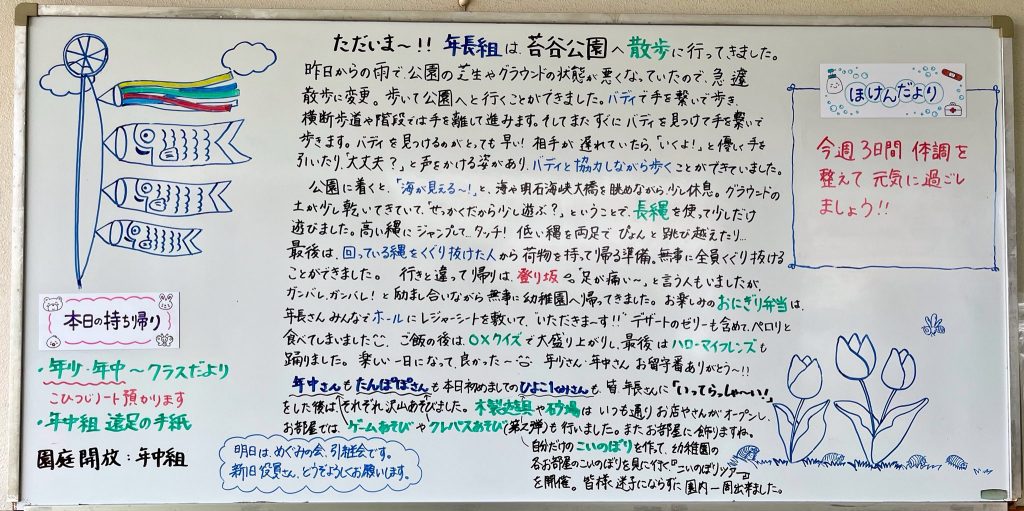 ただいま〜!! 年長組は、苔谷公園へ散歩に行ってきました。
昨日からの雨で、公園の芝生やグラウンドの状態が悪くなっていたので、急遽
散歩に変更。歩いて公園へと行くことができました。バディで手を繋いで歩き、
横断歩道や階段では手を離して進みます。そしてまたすぐにバディを見つけて手を繋いで
歩きます。バディを見つけるのがとっても早い! 相手が遅れていたら、「いくよ!」と優しく手を
引いたり、「大丈夫?」と声をかける姿があり、バディと協力しながら歩くことができていました。
公園に着くと、「海が見える〜!」と、海や明石海峡大橋を眺めながら、少し休息。グラウンドの
土が少し乾いてきていて、「せっかくだから少し遊ぶ?」ということで、長縄を使って少しだけ
遊びました。高い縄にジャンプして、タッチ! 低い縄を両足でぴょんと跳び越えたり…
最後は、回っている縄をくぐり抜けた人から荷物を持って帰る準備。無事に全員くぐり抜ける
ことができました。 行きと違って帰りは、登り坂 足が痛い〜、と言う人もいましたが、
ガンバレ、ガンバレ!と励まし合いながら無事に幼稚園へ帰ってきました。お楽しみのおにぎり弁当は、
年長さんみんなでホールにレジャーシートを敷いて、“いただきま〜す!!” デザートのゼリーも含めて、ペロリと
食べてしまいました ご飯の後は、○×クイズで大盛り上がりし、最後はハローマイフレンズも
踊りました。楽しい一日になって、良かった〜 年少さん・年中さん お留守番ありがとう〜!!
年中さんもたんぽぽさんも本日初めましてのひよこ1組さんも、皆、年長さんに「いってらっしゃ〜い!」
をした後は、それぞれ沢山あそびました。木製遊具や砂場は いつも通りお店やさんがオープンし、
お部屋では、ゲームあそびやクレパスあそび(第2弾)も行いました。またお部屋に飾りますね。
自分だけのこいのぼりを作って、幼稚園の
各お部屋のこいのぼりを見に行く『こいのぼりツアー』
を開催。皆様、迷子にならずに園内一周出来ました。
明日は、めぐみの会、引継会です。
新旧役員さん、どうぞよろしくお願いします。
本日の持ち帰り
・年少・年中〜クラスだより
こひつじノート預かります
・年中組 遠足の手紙
園庭開放:年中組
ほけんだより
今週3日間 体調を
整えて 元気に過ごし
ましょう!!